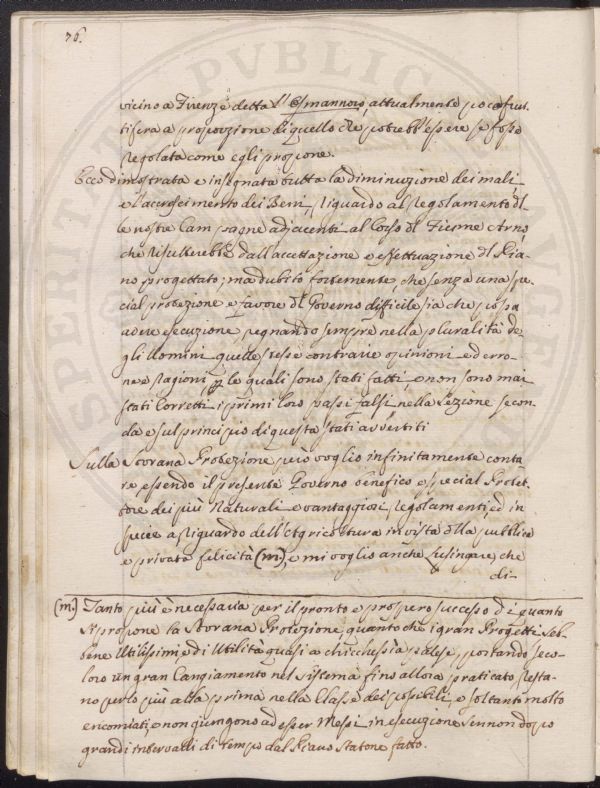 76.
vicino a Firenze detta l'Osmannoro, attualmente poco frut-
tifera a proporzione di quello che potrebb'essere se fosse
regolata come egli propone.
Ecco dimostrata e insegnata tutta la diminuzione dei mali,
e l'accrescimento dei Beni, riguardo al regolamento del
le nostre Campagne adjacenti al Corso del Fiume Arno
che risulterebbe dall'accettazione e effettuazione del Pia-
no progettato; ma dubito fortemente, che senza una spe-
cial protezione e favore del Governo difficile sia che possa
avere esecuzione, regnando sempre nella pluralità de-
gli Uomini quelle stesse contrarie opinioni ed erro-
nee ragioni per le quali sono stati fatti, e non sono mai
stati corretti i primi loro passi falsi, nella Sezione secon-
da e sul principio di questa stati avvertiti
Sulla Sovrana Protezione può voglio infinitamente conta
re, essendo il presente Governo benefico e special Protet-
tore dei più Naturali e vantaggiosi regolamenti, ed in
specie a riguardo dell'Agricoltura in vista della pubblica
e privata felicità (m), e mi voglio anche lusingare, che
di-
(m.) Tanto più è necessaria per il pronto e prospero successo di quanto
si propone la Sovrana Protezione, quanto che i gran Progetti seb-
bene Utilissimi, e di Utilità quasi a chicchessia palese, portando seco-
loro un gran Cangiamento nel sistema fino allora praticato, resta-
no per lo più alla prima nella Classe dei possibili, e soltanto molto
encomiati, e non giungono ad esser Messi in esecuzione sennon dopo
grandi intervalli di tempo dal Piano statone fatto.
SPERITAS PUBLICA AUGE